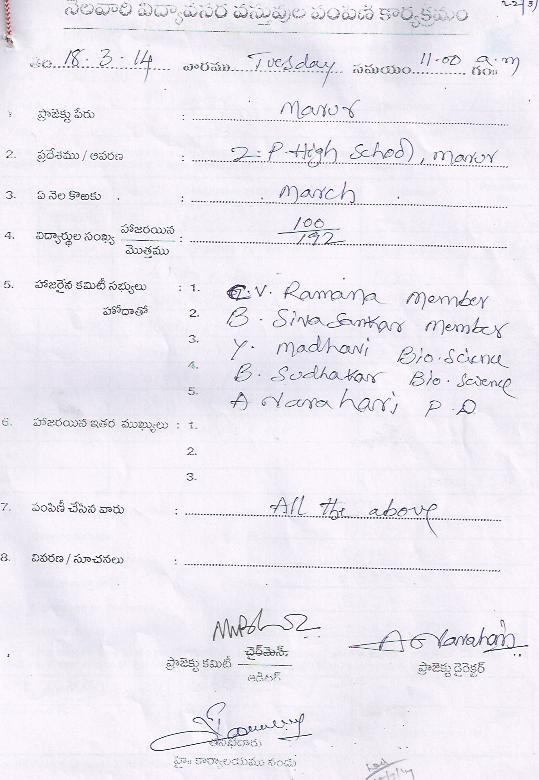 నెలవారి విద్యావసర వస్తువుల పంపిణి కార్యక్రమం
తేది. 18.3.14 వారము Tuesday సమయం 11.00 a.m గం॥
1. ప్రాజెక్టు పేరు : Marur
2. ప్రదేశము / ఆవరణ : Z.P High School, Marur
3. ఏ నెల కొఱకు : March
4. విద్యార్థుల సంఖ్య హాజరయిన / మొత్తము : 100 / 192
5. హాజరైన కమిటీ సభ్యులు : 1. C.V. Ramana Member
హోదాతో 2. B. Siva Sankar Member
3. Y. Madhavi Bio.Science
4. B. Sudhakar Bio.Science
5. A Narahari P.D
6. హాజరయిన ఇతర ముఖ్యులు : 1.
2.
3.
7. పంపిణీ చేసిన వారు : All the above
8. వివరణ / సూచనలు :
A Narahari
ప్రాజెక్టు కమిటీ చైర్‌మెన్ ప్రాజెక్టు డైరెక్టర్
ఆడిటర్
హై॥ కార్యాలయము నందు